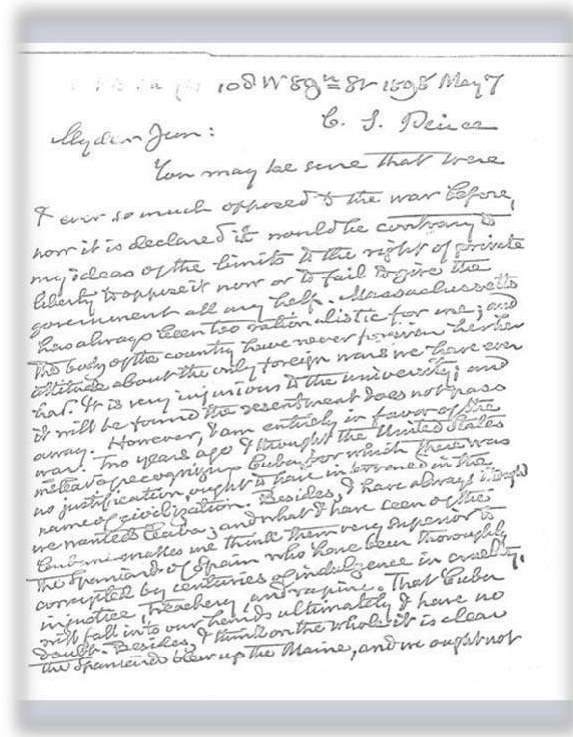 108 W 89th St 1898 May 7
C. S. Peirce
My dear Jem:
You may be sure that were
I ever so much opposed to the war before,
now it is declared it would be contrary to
my ideas of the limits to the right of private
liberty to oppose it now or to fail to give the
government all my help. Massachusetts
has always been too rationalistic for me; and
the body of the country have never forgiven her
attitude about the only foreign wars we have ever
had. It is very injurious to the university; and
it will be found the resentment does not pass
away. However, I am entirely in favor of the
war. Two years ago I thought the United States
instead of recognizing Cuba, for which there was
no justification ought to have intervened in the
name of civilization. Besides, I have always thought
we wanted Cuba; and what I have seen of the
Cubans makes me think them very superior to
the Spaniard of Spain who have been thoroughly
corrupted by centuries of indulgence in cruelty,
injustice, treachery, and rapine. That Cuba
will fall into our hands ultimately I have no
doubt. Besides, I think on the whole it is clear
the Spaniards blew up the Maine, and we ought not